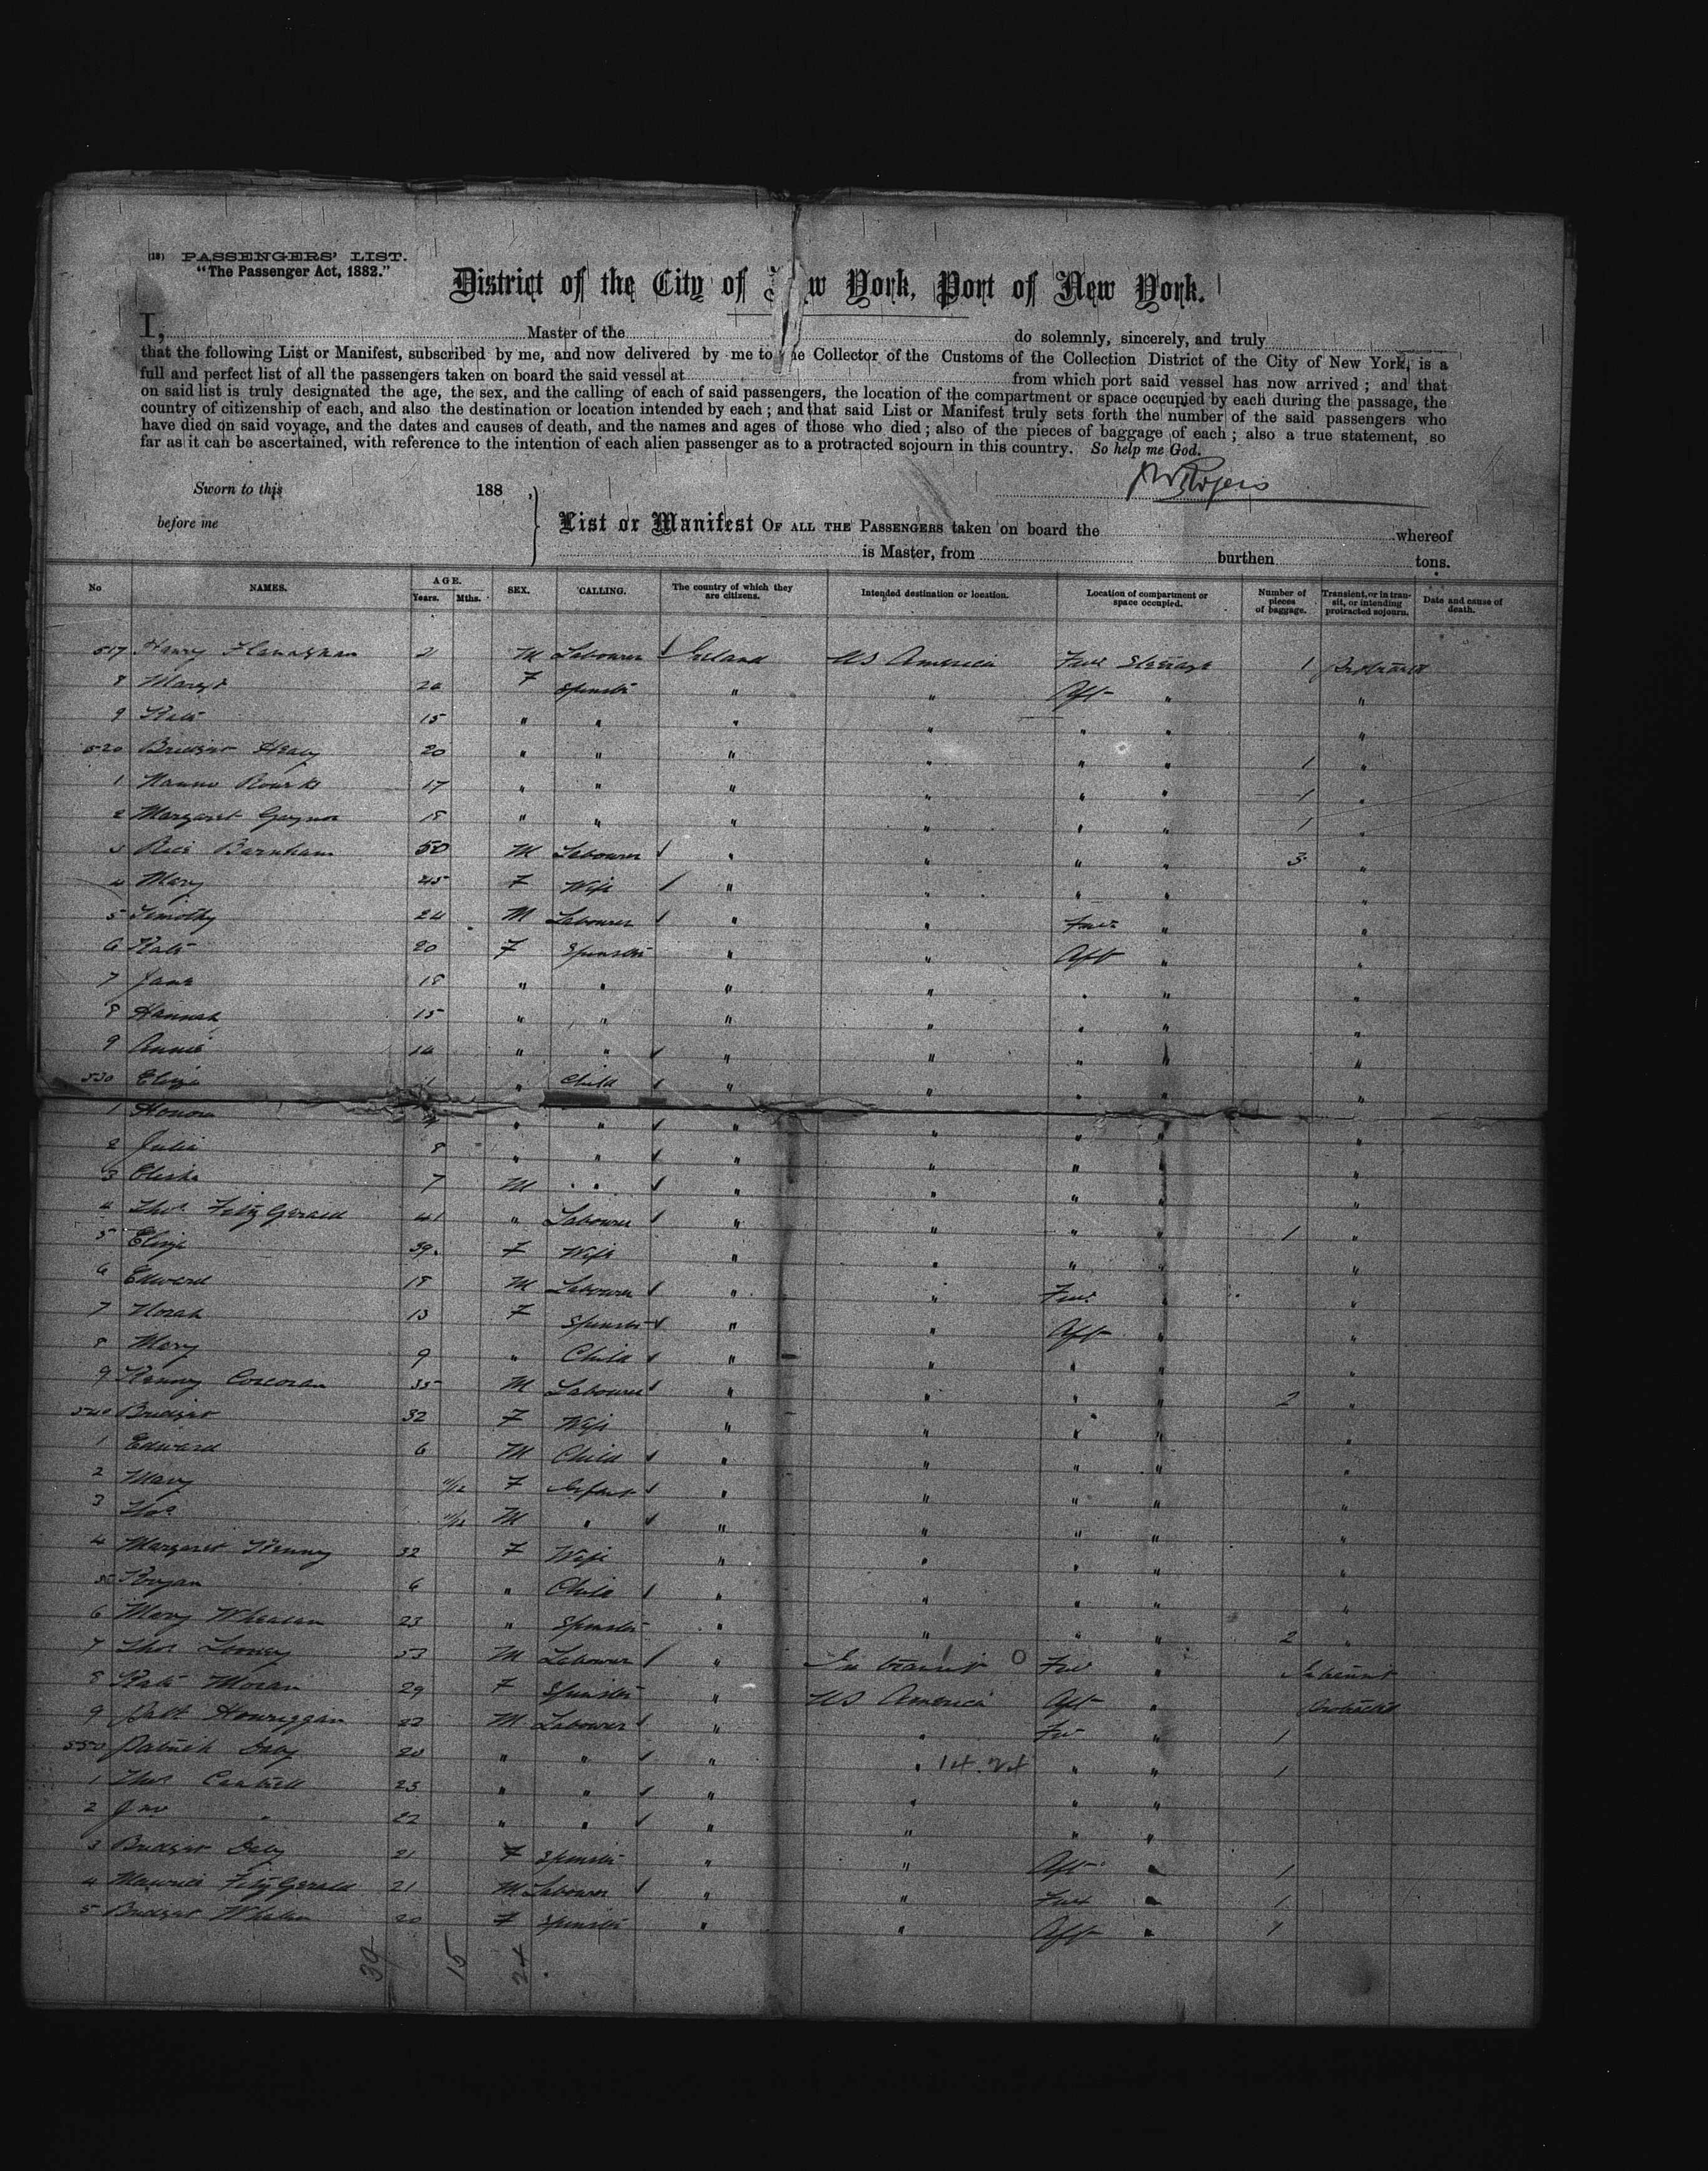 (18) PASSENGERS' LIST.
"The Passenger Act, 1882."
District of the City of New York, Port of New York.
I, Master of the do solemnly, sincerely, and truly
that the following List or Manifest, subscribed by me, and now delivered by me to the Collector of the Customs of the Collection District of the City of New York, is a
full and perfect list of all the passengers taken on board the said vessel at from which port said vessel has now arrived; and that
on said list is truly designated the age, the sex, and the calling of each of said passengers, the location of the compartment or space occupied by each during the passage, the
country of citizenship of each, and also the destination or location intended by each; and that said List or Manifest truly sets forth the number of the said passengers who
have died on said voyage, and the dates and causes of death, and the names and ages of those who died; also of the pieces of baggage of each; also a true statement, so
far as it can be ascertained, with reference to the intention of each alien passenger as to a protracted sojourn in this country. So help me God.
Rogers
Sworn to this 188 ,
before me
List or Manifest OF ALL THE PASSENGERS taken on board the whereof
is Master, from burthen tons.
No NAMES. AGE. Years. Mths. SEX. CALLING. The country of which they are citizens. Intended destination or location. Location of compartment or space occupied. Number of pieces of baggage. Transient, or in transit, or intending protracted sojourn. Date and cause of death.
517 Henry Flanaghan 21 M Labourer Ireland US America Fwd Steerage 1
8 F Spinster " " Aft " "
9 Kate 15 " " " " " " "
520 Bridget Healy 20 " " " " " " 1 "
1 17 " " " " " " 1 "
2 Margaret Gaynor 18 " " " " " " 1 "
3 Barnham 50 M Labourer " " " " 3 "
4 Mary 45 F Wife " " " " "
5 Timothy 24 M Labourer " " Fwd " "
6 Kate 20 F Spinster " " Aft " "
7 Jane 18 " " " " " " "
8 Hannah 15 " " " " " " "
9 Annie 14 " " " " " " "
530 Eliza " Child " " " " "
1 Honora " " " " " " "
2 Julia 8 " " " " " " "
3 Elisha 7 M " " " " " "
4 Thos FitzGerald 41 " Labourer " " " " 1 "
5 Eliza 39 F Wife " " " " "
6 Edward 18 M Labourer " " Fwd " "
7 Norah 13 F Spinster " " Aft " "
8 Mary 9 " Child " " " " "
9 Corcoran 35 M Labourer " " " " 2 "
540 Bridget 32 F Wife " " " " "
1 Edward 6 M Child " " " " "
2 Mary 11/12 F Infant " " " " "
3 Thos 11/12 M " " " " " "
4 Margaret Kenny 32 F Wife " " " " "
5 6 " Child " " " " "
6 Mary Whealan 23 " Spinster " " " " 2 "
7 Thos 53 M Labourer " In transit O Fwd "
8 Kate Moran 29 F Spinster " US America Aft "
9 Patk Hourigan 22 M Labourer " " Fwd " 1
550 Patrick Daly 20 " " " " " " 1
1 Thos Cantwell 25 " " " " " "
2 Jno " 22 " " " " " "
3 Bridget Daly 21 F Spinster " " Aft " 1
4 Maurice FitzGerald 21 M Labourer " " Fwd " 1
5 Bridget Whelan 20 F Spinster " " Aft " 1
39 15 24